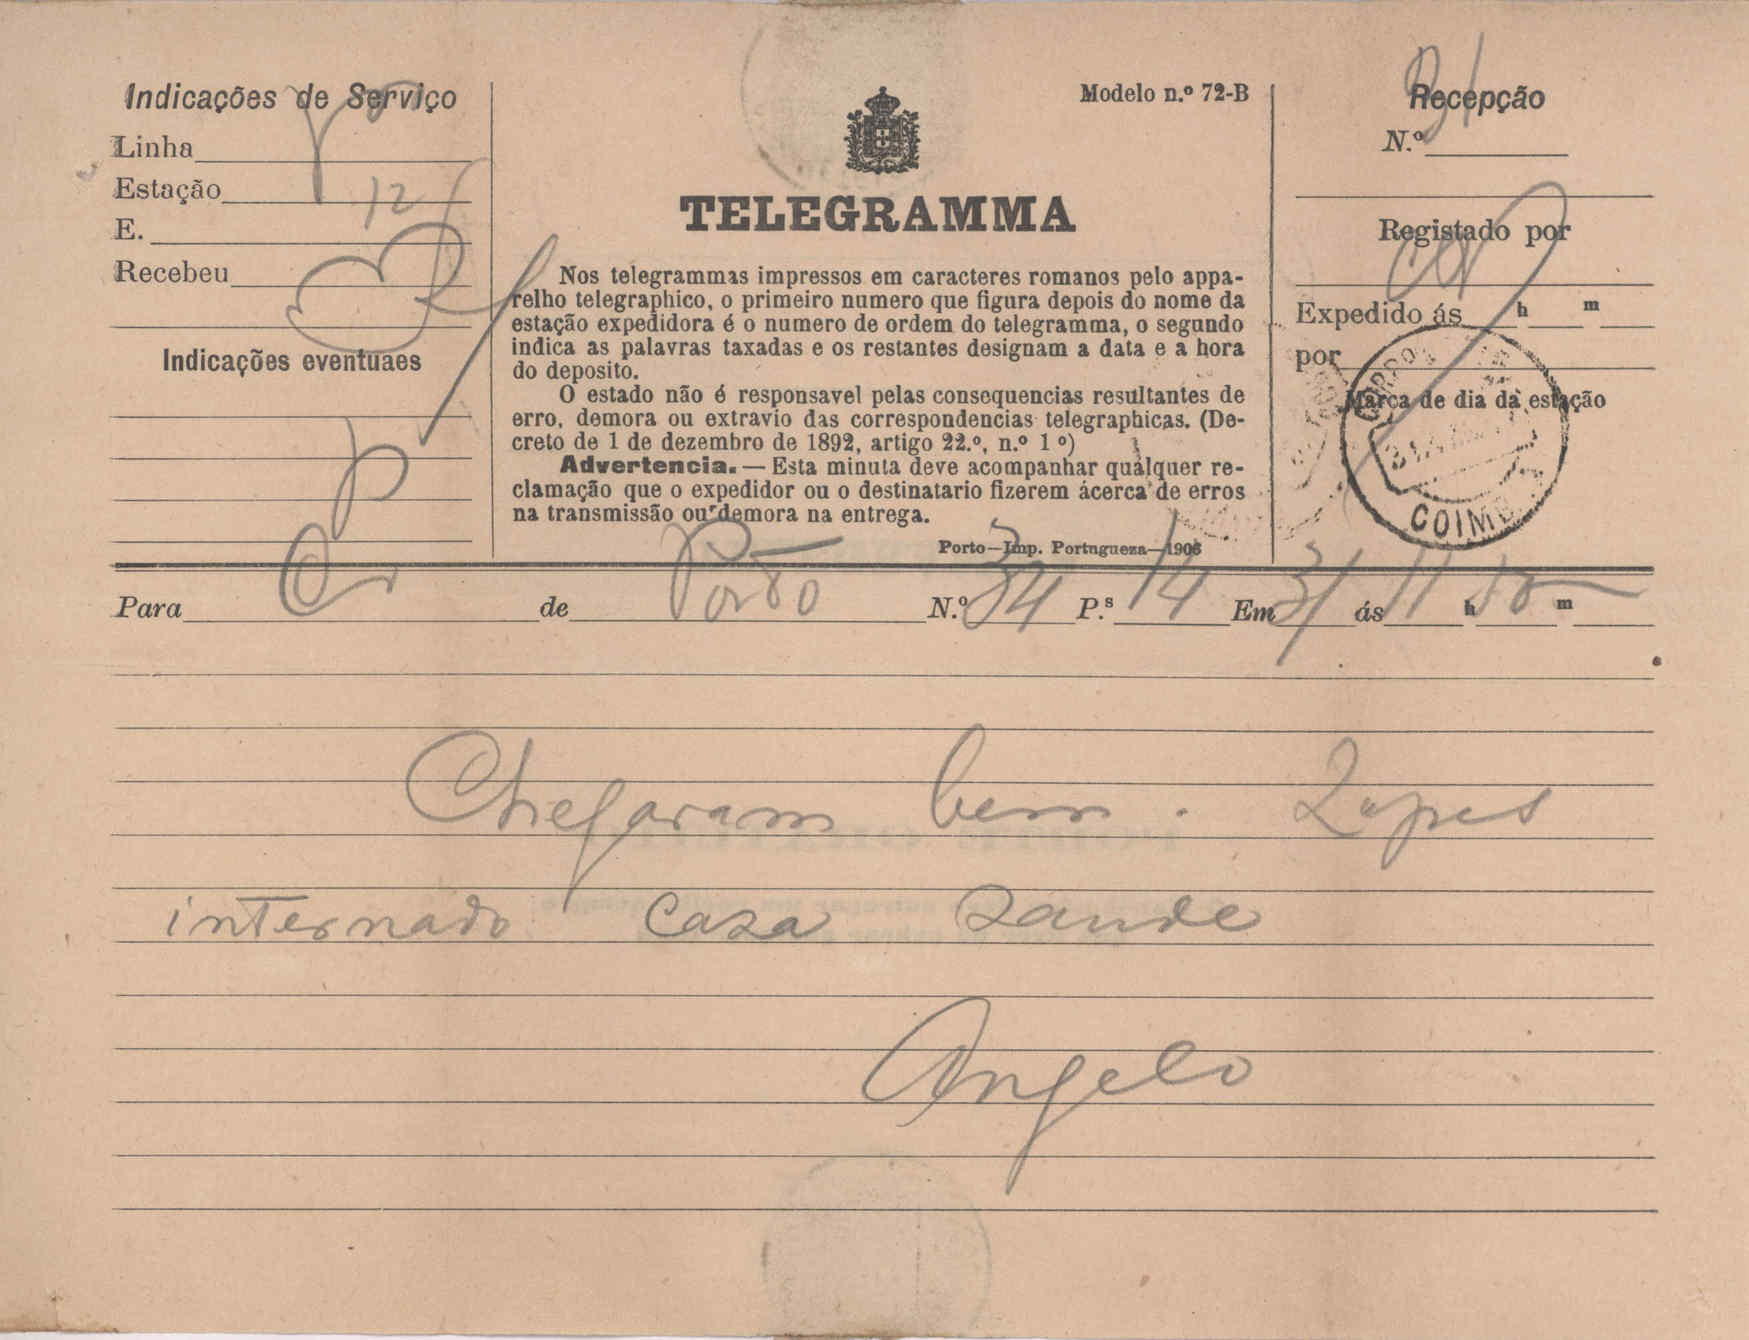 Indicações de Serviço
Linha
Estação
12
E.
Recebeu
Indicações eventuaes
Modelo n.º 72-B
TELEGRAMMA
Nos telegrammas impressos em caracteres romanos pelo appa-
relho telegraphico, o primeiro numero que figura depois do nome da
estação expedidora é o numero de ordem do telegramma, o segundo
indica as palavras taxadas e os restantes designam a data e a hora
do deposito.
O estado não é responsavel pelas consequencias resultantes de
erro, demora ou extravio das correspondencias telegraphicas. (De-
creto de 1 de dezembro de 1892, artigo 22.º, n.º 1 º)
Advertencia. — Esta minuta deve acompanhar qualquer re-
clamação que o expedidor ou o destinatario fizerem ácerca de erros
na transmissão ou demora na entrega.
Porto—Imp. Portugueza—1906
Recepção
N.º
Registado por
Expedido ás h m
por
Marca de dia da estação
Para de Porto N.º P.s 14 Em 31 ás 11 h m
Chegaram bem . Lopes
internado Casa Saude
Angelo